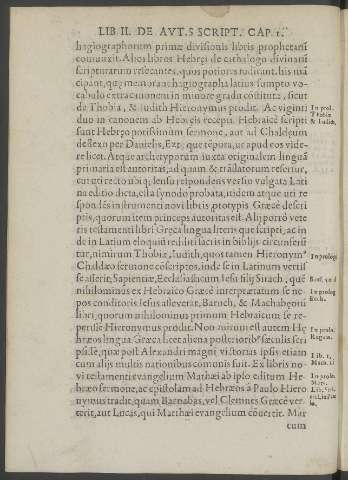 LIB II. DE AVT.S SCRIPT. CAP. I.
hagiographorum primæ divisionis libris prophetam
coniunxit. Alios libros Hebręi de cathalogo divinarũ
scripturarum resecantes, quos potiores iudicant, his mã
cipant, quę memorant hagiographa latius sumpto vo-
cabulo extra canonem in minore gradu constituta, sicut
de Thobia, & Iudith Hieronymus prodit. Ac viginti
duo in canonem ab Hebręis recepti. Hebraicè scripti
sunt Hebręo potissimum sermone, aut ad Chaldęum
deflexo per Danielis,
re licet. Atque archetyporum iuxta originalem linguã
primaria est autoritas, ad quam & trãslatorum resertur,
cui in recto
na editio dicta, ella synodo probata, itidem atque uti re
spondés instrumenti novi libris prototypis Græcè descri
ptis, quorum item princeps autoritas est. Alij porrò vete
ris testamenti libri Gręca lingua literis que scripti, ac in
de in Latium eloquiũ redditi sacris in biblijs circunferũ
tur, nimirum Thobiæ, Iudith, quos tamen Hieronymꝰ
Chaldæo sermone cõscriptos, inde se in Latinum vertis
se asserit, Sapientiæ, Ecclesiasticum Iesu filij Sirach, quẽ
nihilominus ex Hebraico Græcè interpretatum se ne-
pos conditoris Iesus asseverat, Baruch, & Machabęorũ
libri, quorum nihilominus primum Hebraicum se re-
perisse Hieronymus prodit. Non mirum est autem He
bræos lingua Græca licet aliena posterioribꝰ sæculis scri
psisse, quæ post Alexandri magni victorias ipsis etiam
cum alijs multis nationibus comunis fuit. Ex libris no-
vi testamenti evangelium Mathæi ab ipso editum He
bræo sermone, ac epistolam ad Hebræos à Paulo Hiero
nymus tradit, quam Barnabas, vel Clemens Græcè ver-
terit, aut Lucas, qui Matthæi evangelium cõvertit. Mar
cum
In prol.
Thobiæ
& Iudith.
In prologi
In prol.
In prolo.
Regum.
Lib. 1.
Mach. 1
In prolo.
Mat.